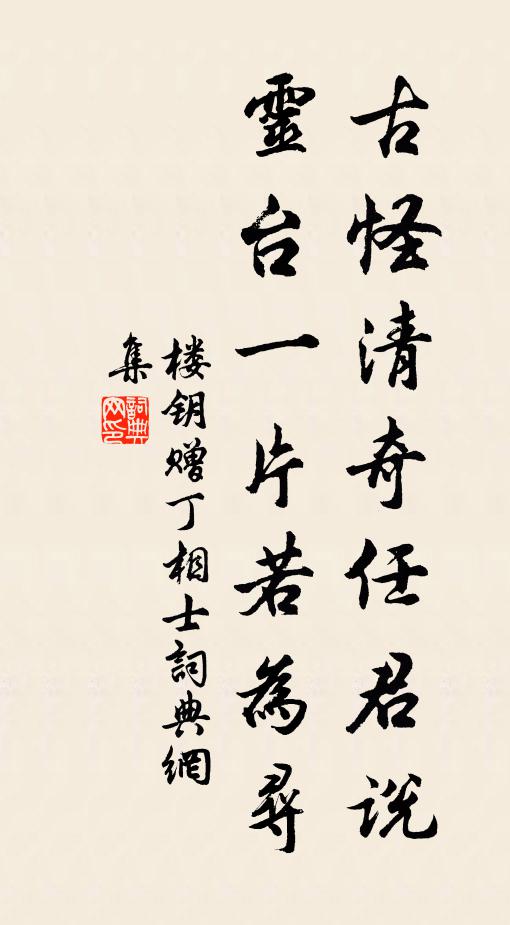 古怪清奇任君説
靈台一片若為尋
楼钥赠丁相士詞典網
集
詞典網印